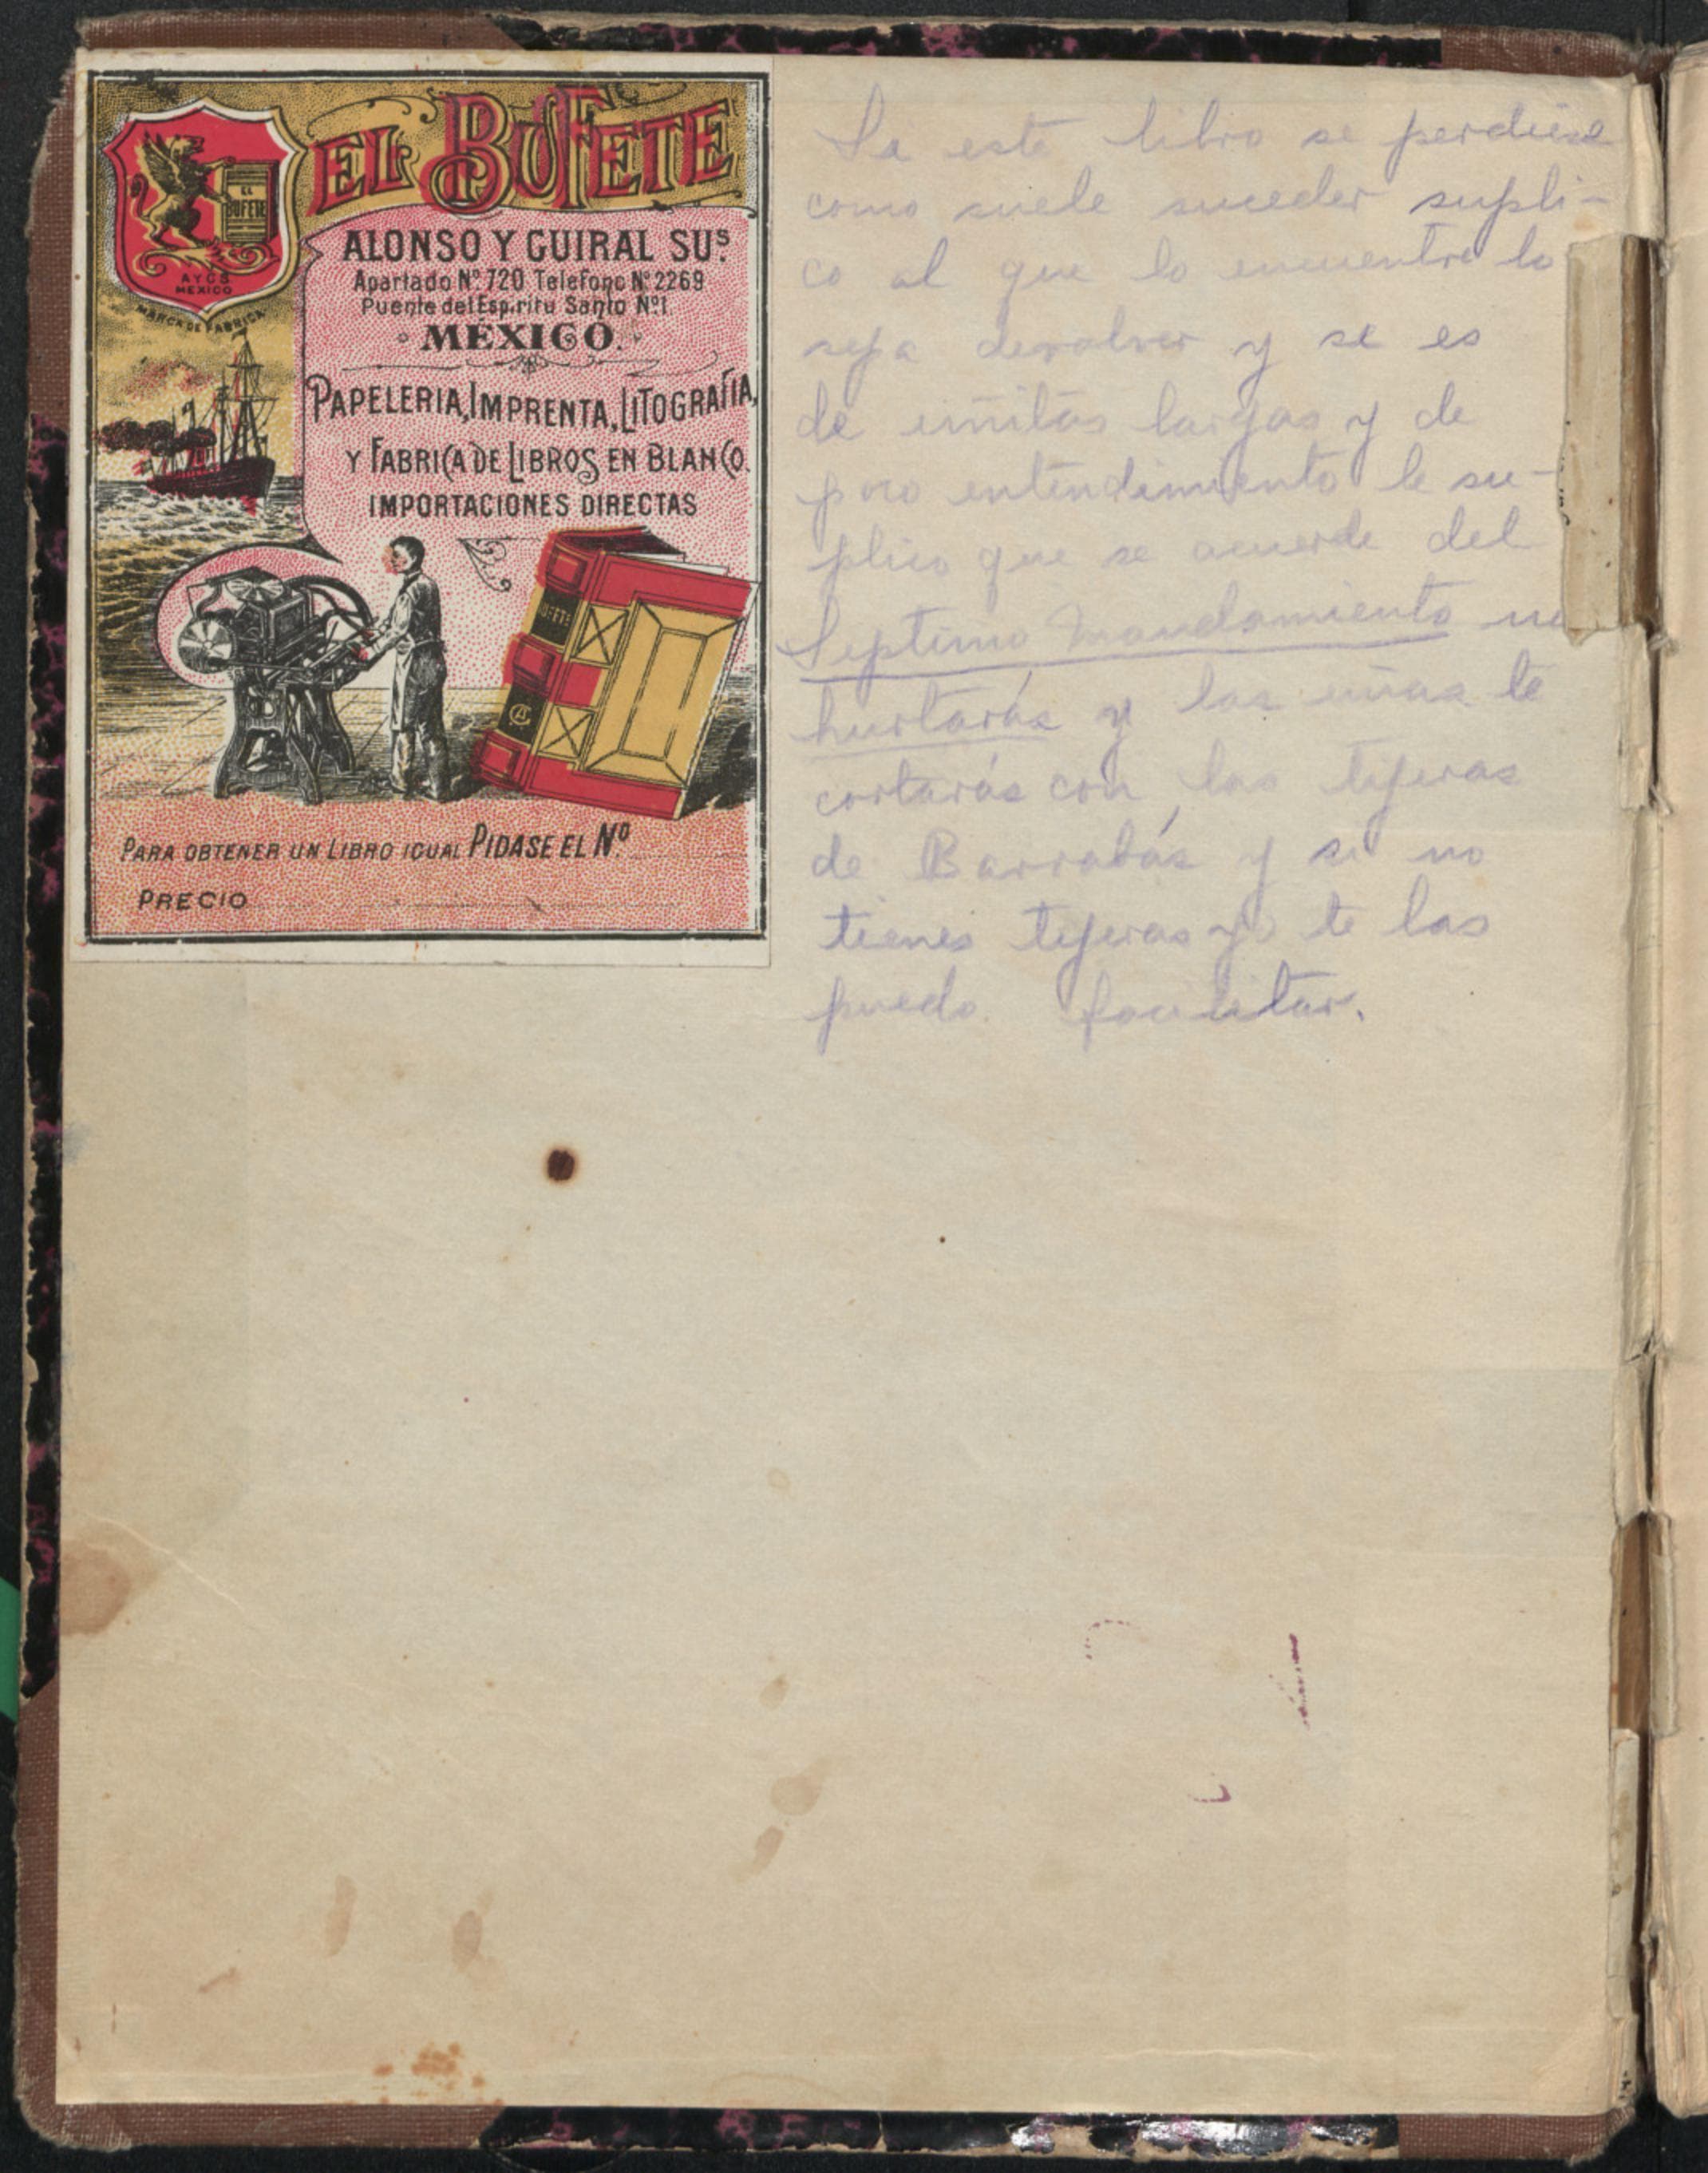 EL BUFETE
EL
BUFETE
A Y G S
MEXICO
MARCA DE FABRICA
ALONSO Y GUIRAL SUS.
Apartado Nº 720 Telefono Nº 2269
Puente del Espiritu Santo Nº 1.
MÉXICO.
PAPELERIA, IMPRENTA, LITOGRAFIA,
Y FABRICA DE LIBROS EN BLANCO.
IMPORTACIONES DIRECTAS
BUFETE
PARA OBTENER UN LIBRO IGUAL PIDASE EL Nº
PRECIO
Si este libro se perdiese
como suele suceder supli-
co al que lo encuentre lo
sepa devolver y si es
de uñitas largas y de
poco entendimiento le su-
plico que se acuerde del
Septimo Mandamiento no
hurtarás y las uñas te
cortarás con las tijeras
de Barrabás y si no
tienes tijeras yo te las
puedo facilitar.